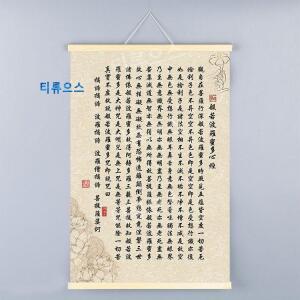 티류으스
般若波羅蜜多心經
觀自在菩薩行深般若波羅蜜多時照見五蘊皆空度一切苦厄
舍利子色不異空空不異色色即是空空即是色受想行識亦復如
是舍利子是諸法空相不生不滅不垢不淨不增不減是故空
中無色無受想行識無眼耳鼻舌身意無色聲香味觸法無眼界
乃至無意識界無無明亦無無明盡乃至無老死亦無老死盡無
苦集滅道無智亦無得以無所得故菩提薩埵依般若波羅蜜多
故心無罣礙無罣礙故無有恐怖遠離顛倒夢想究竟涅槃三世
諸佛依般若波羅蜜多故得阿耨多羅三藐三菩提故知般若波
羅蜜多是大神咒是大明咒是無上咒是無等等咒能除一切苦
真實不虛故說般若波羅蜜多咒即說咒曰
揭諦揭諦 波羅揭諦 波羅僧揭諦 菩提薩婆訶